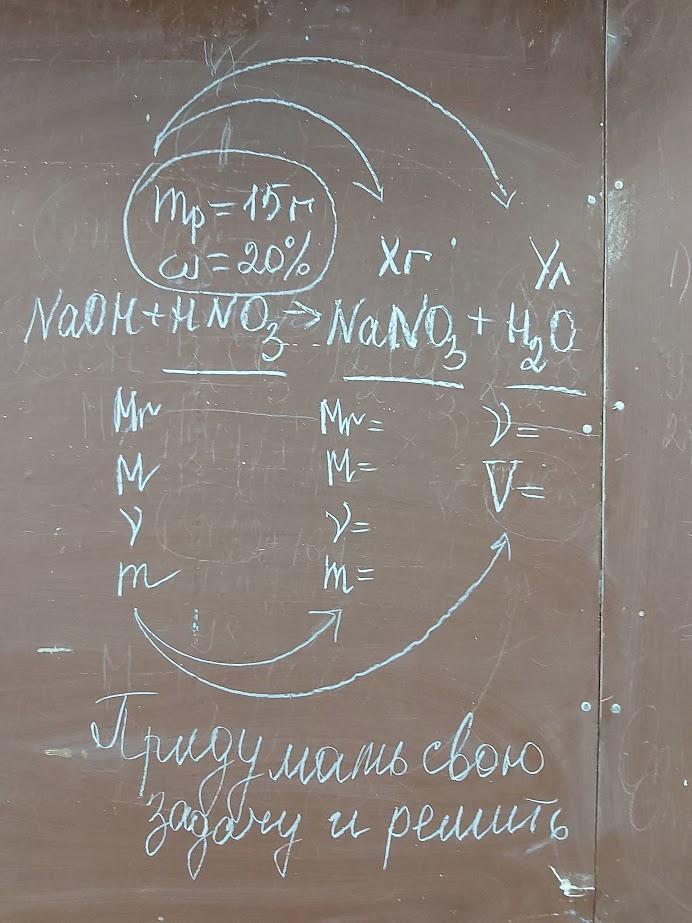 mр = 15 г
ω = 20%
Xг Yл
NaOH + HNO₃ → NaNO₃ + H₂O
Mr Mr= ν=
M M= V=
ν ν=
m m=
Придумать свою
задачу и решить